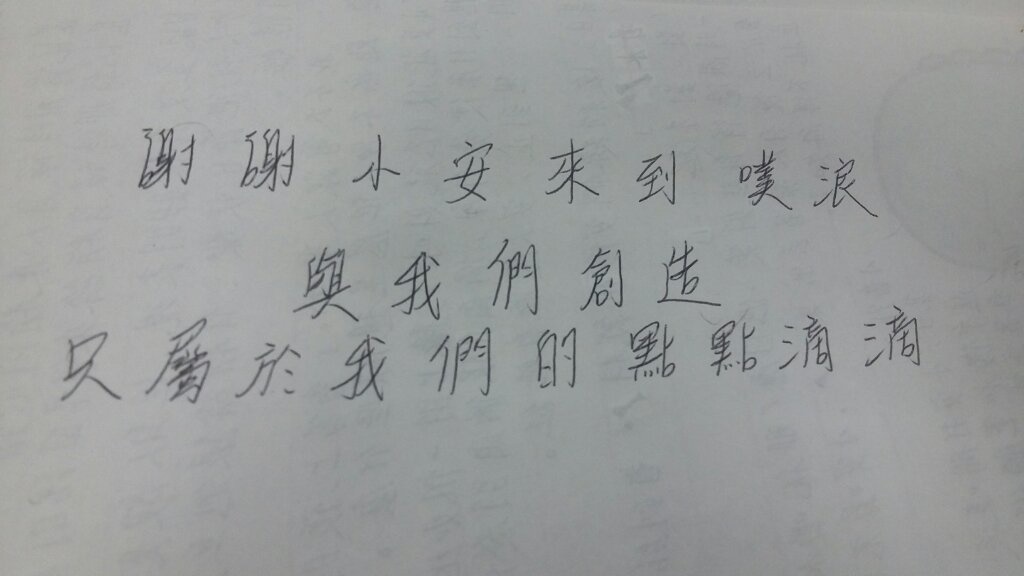 謝謝小安來到噗浪
與我們創造
只屬於我們的點點滴滴